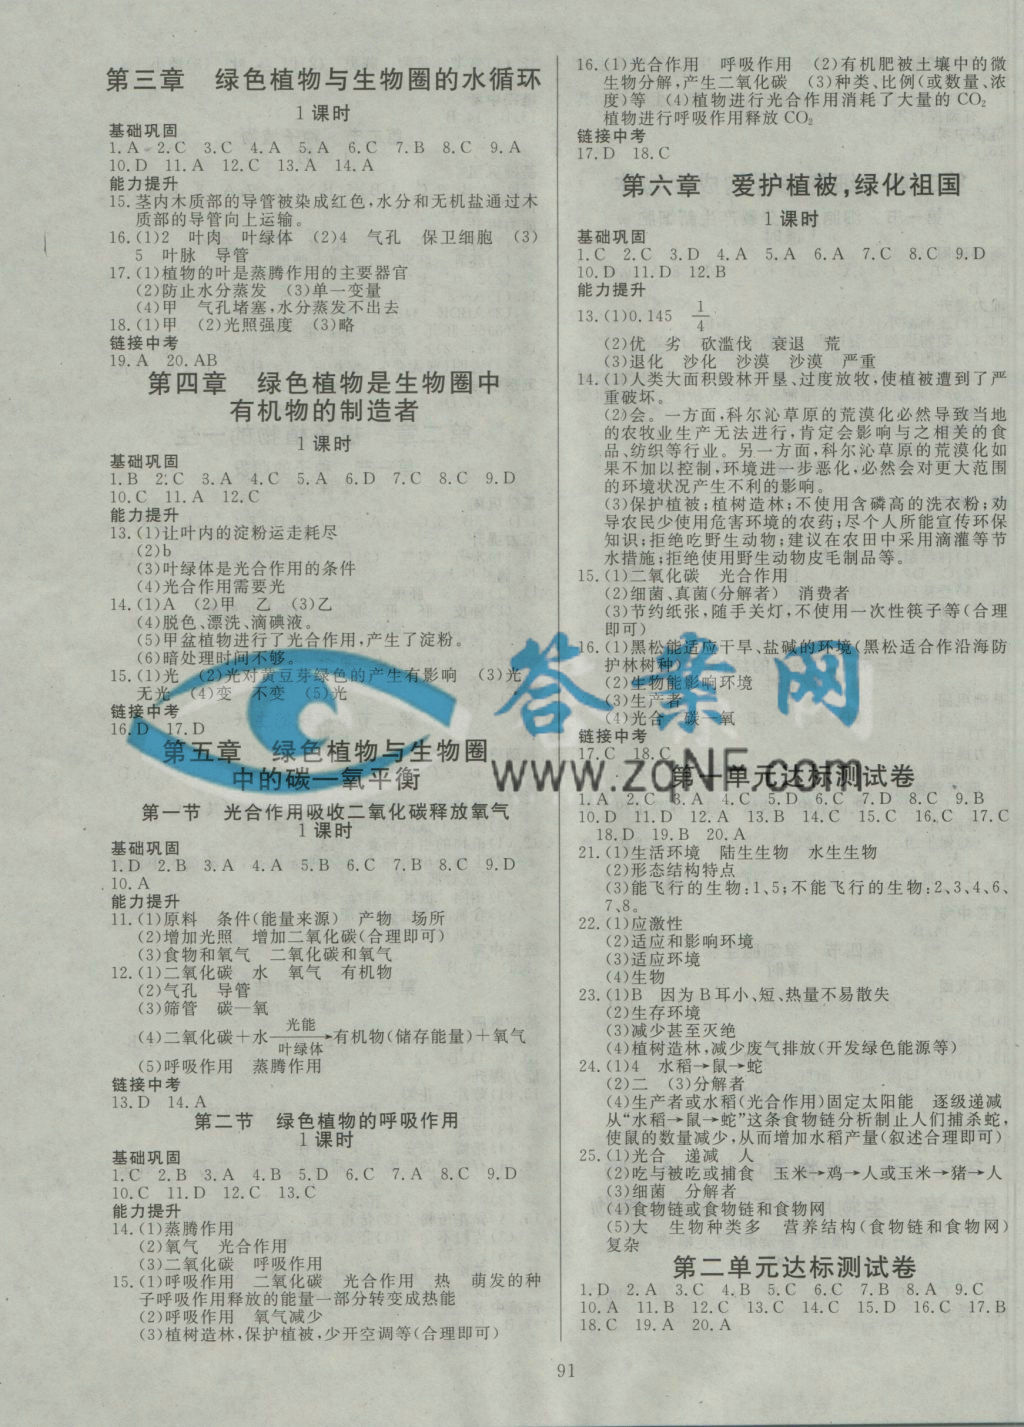 第三章 绿色植物与生物圈的水循环
1课时
基础巩固
1.A 2.C 3.C 4.A 5.A 6.C 7.B 8.C 9.A
10.D 11.A 12.C 13.A 14.A
能力提升
15.茎内木质部的导管被染成红色,水分和无机盐通过木
质部的导管向上运输。
16.(1)2 叶肉 叶绿体 (2)4 气孔 保卫细胞 (3)
5 叶脉 导管
17.(1)植物的叶是蒸腾作用的主要器官
(2)防止水分蒸发 (3)单一变量
(4)甲 气孔堵塞,水分蒸发不出去
18.(1)甲 (2)光照强度 (3)略
链接中考
19.A 20.AB
第四章 绿色植物是生物圈中
有机物的制造者
1课时
基础巩固
1.B 2.C 3.A 4.C 5.A 6.D 7.C 8.C 9.D
10.C 11.A 12.C
能力提升
13.(1)让叶内的淀粉运走耗尽
(2)b
(3)叶绿体是光合作用的条件
(4)光合作用需要光
14.(1)A (2)甲 乙 (3)乙
(4)脱色、漂洗、滴碘液。
(5)甲盆植物进行了光合作用,产生了淀粉。
(6)暗处理时间不够。
15.(1)光 (2)光对黄豆芽绿色的产生有影响 (3)光
无光 (4)变 不变 (5)光
链接中考
16.D 17.D
第五章 绿色植物与生物圈
中的碳—氧平衡
第一节 光合作用吸收二氧化碳释放氧气
1课时
基础巩固
1.D 2.B 3.A 4.A 5.B 6.C 7.B 8.C 9.D
10.A
能力提升
11.(1)原料 条件(能量来源) 产物 场所
(2)增加光照 增加二氧化碳(合理即可)
(3)食物和氧气 二氧化碳和氧气
12.(1)二氧化碳 水 氧气 有机物
(2)气孔 导管
(3)筛管 碳—氧
(4)二氧化碳+水 光能/叶绿体→有机物(储存能量)+氧气
(5)呼吸作用 蒸腾作用
链接中考
13.D 14.A
第二节 绿色植物的呼吸作用
1课时
基础巩固
1.C 2.B 3.A 4.B 5.D 6.C 7.A 8.C 9.D
10.C 11.D 12.C 13.C
能力提升
14.(1)蒸腾作用
(2)氧气 光合作用
(3)二氧化碳 呼吸作用
15.(1)呼吸作用 二氧化碳 光合作用 热 萌发的种
子呼吸作用释放的能量一部分转变成热能
(2)呼吸作用 氧气减少
(3)植树造林,保护植被,少开空调等(合理即可)
16.(1)光合作用 呼吸作用 (2)有机肥被土壤中的微
生物分解,产生二氧化碳 (3)种类、比例(或数量、浓
度)等 (4)植物进行光合作用消耗了大量的CO2
植物进行呼吸作用释放CO2
链接中考
17.D 18.C
第六章 爱护植被,绿化祖国
1课时
基础巩固
1.C 2.C 3.D 4.A 5.A 6.A 7.C 8.C 9.D
10.D 11.D 12.B
能力提升
13.(1)0.145 1/4
(2)优 劣 砍滥伐 衰退 荒
(3)退化 沙化 沙漠 沙漠 严重
14.(1)人类大面积毁林开垦、过度放牧,使植被遭到了严
重破坏。
(2)会。一方面,科尔沁草原的荒漠化必然导致当地
的农牧业生产无法进行,肯定会影响与之相关的食
品、纺织等行业。另一方面,科尔沁草原的荒漠化如
果不加以控制,环境进一步恶化,必然会对更大范围
的环境状况产生不利的影响。
(3)保护植被;植树造林;不使用含磷高的洗衣粉;劝
导农民少使用危害环境的农药;尽个人所能宣传环保
知识;拒绝吃野生动物;建议在农田中采用滴灌等节
水措施;拒绝使用野生动物皮毛制品等。
15.(1)二氧化碳 光合作用
(2)细菌、真菌(分解者) 消费者
(3)节约纸张,随手关灯,不使用一次性筷子等(合理
即可)
16.(1)黑松能适应干旱、盐碱的环境(黑松适合作沿海防
护林树种)
(2)生物能影响环境
(3)生产者
(4)光合 碳—氧
链接中考
17.C 18.C
第一单元达标测试卷
1.A 2.C 3.A 4.C 5.D 6.C 7.D 8.C 9.B
10.D 11.D 12.A 13.B 14.C 15.C 16.C 17.C
18.D 19.B 20.A
21.(1)生活环境 陆生生物 水生生物
(2)形态结构特点
(3)能飞行的生物:1、5;不能飞行的生物:2、3、4、6、
7、8。
22.(1)应激性
(2)适应和影响环境
(3)适应环境
(4)生物
23.(1)B 因为B耳小、短、热量不易散失
(2)生存环境
(3)减少甚至灭绝
(4)植树造林,减少废气排放(开发绿色能源等)
24.(1)4 水稻→鼠→蛇
(2)二 (3)分解者
(4)生产者或水稻(光合作用)固定太阳能 逐级递减
从“水稻→鼠→蛇”这条食物链分析制止人们捕杀蛇,
使鼠的数量减少,从而增加水稻产量(叙述合理即可)
25.(1)光合 递减 人
(2)吃与被吃或捕食 玉米→鸡→人或玉米→猪→人
(3)细菌 分解者
(4)食物链或食物链和食物网
(5)大 生物种类多 营养结构(食物链和食物网)
复杂
第二单元达标测试卷
1.D 2.A 3.C 4.B 5.C 6.C 7.B 8.A 9.C
10.A 11.B 12.C 13.C 14.D 15.D 16.C 17.B
18.C 19.A 20.A
91
答案网
www.zqNF.com